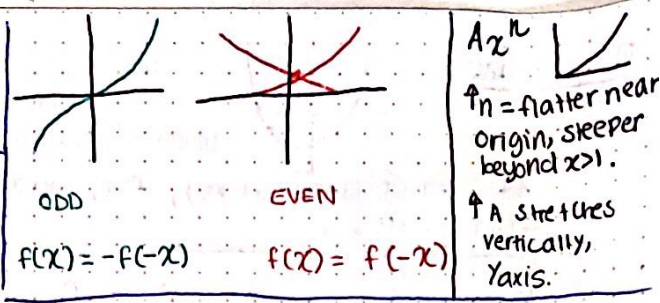 ODD
f(x) = -f(-x)
EVEN
f(x) = f(-x)
Axⁿ
↑n = flatter near
origin, steeper
beyond x>1.
↑ A stretches
vertically,
Yaxis.